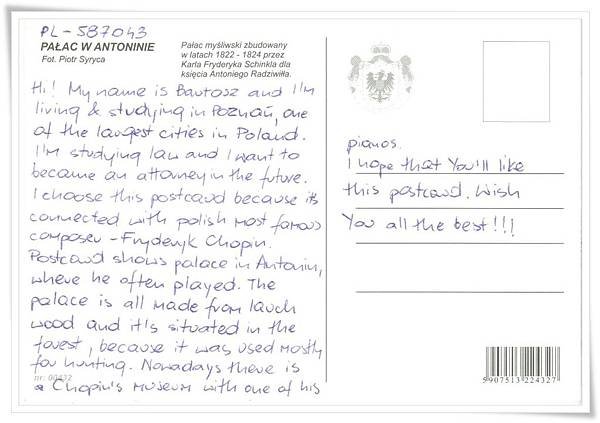 PL-587043
PAŁAC W ANTONINIE
Fot. Piotr Syryca
Pałac myśliwski zbudowany
w latach 1822 - 1824 przez
Karla Fryderyka Schinkla dla
księcia Antoniego Radziwiłła.
Hi! My name is Bartosz and I'm
living & studying in Poznań, one
of the largest cities in Poland.
I'm studying law and I want to
became an attorney in the future.
I choose this postcard because it's
connected with polish most famous
composer - Fryderyk Chopin.
Postcard shows palace in Antonin,
where he often played. The
palace is all made from larch
wood and it's situated in the
forest, because it was used mostly
for hunting. Nowadays there is
nr: 00432
a Chopin's museum with one of his
pianos.
I hope that You'll like
this postcard. Wish
You all the best!!!
5907513 224327